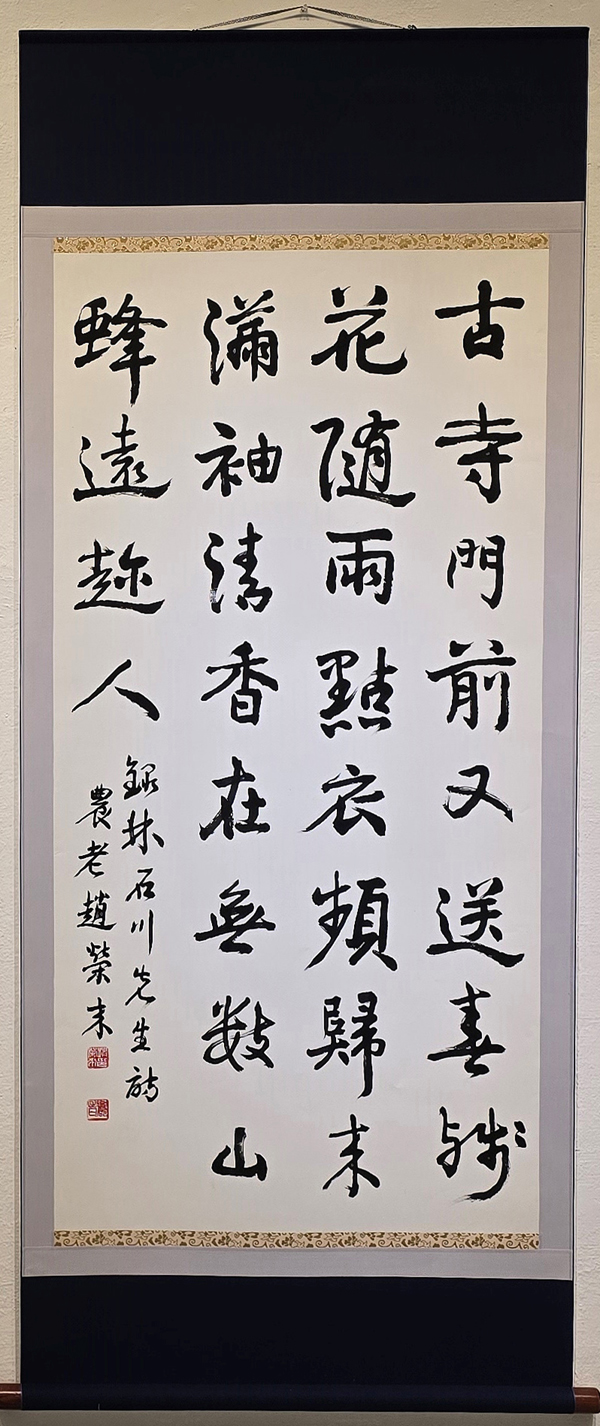 古寺門前又送春殘
花隨雨點衣頻歸来
滿袖清香在無數山
蜂遠趂人
錄林石川先生詩
農老趙榮来